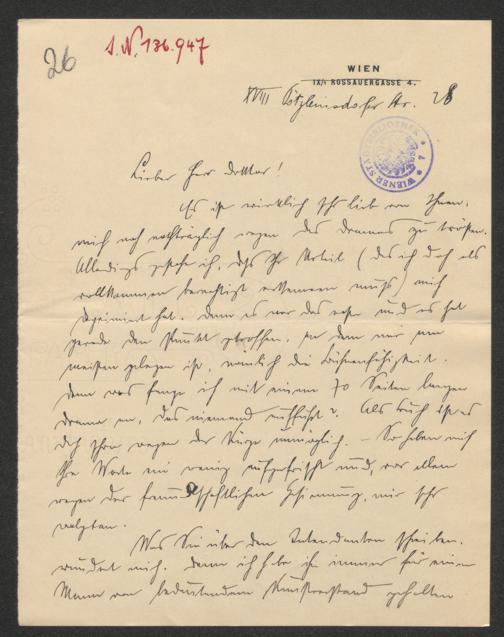 26
I.N. 136.947
WIEN
IX/1 ROSSAUERGASSE 4.
XVIII Pötzleinsdorfer Str. 28
WIENER STADTBIBLIOTHEK
Lieber Herr Doktor!
Es ist wirklich sehr lieb von Ihnen,
mich noch nachträglich wegen des Dramas zu trösten.
Allerdings gestehe ich, daß Ihr Urteil (das ich doch als
vollkommen berechtigt erkennen muß) mich
deprimiert hat. Denn es war das erste und es hat
gerade den Punkt getroffen, an dem mir am
meisten gelegen ist, nämlich die Bühnenfähigkeit.
Denn was fange ich mit einem 70 Seiten langen
Drama an, das niemand aufführt? Als Buch ist es
doch schon wegen der Kürze unmöglich. – So haben mich
Ihre Worte ein wenig aufgefrischt und, vor allem
wegen der freundschaftlichen Gesinnung, mir sehr
wohlgetan.
Was Sie über den Intendanten schreiben,
wundert mich. Denn ich habe ihn immer für einen
Mann von bedeutendem Kunstverstand gehalten